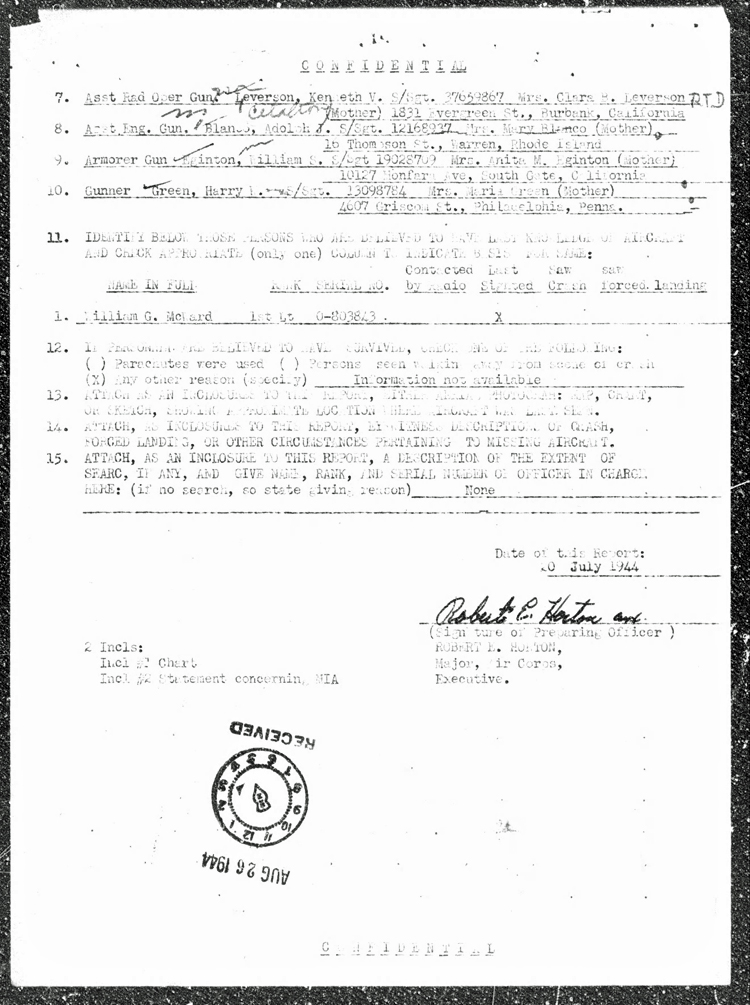 CONFIDENTIAL
7. Asst Rad Oper Gun. Leverson, Kenneth V. S/Sgt. 37659867 Mrs. Clara B. Leverson RTD
(Mother) 1831 Evergreen St., Burbank, California
8. Asst Eng. Gun. Blanco, Adolph J. S/Sgt. 12168937 Mrs. Mary Blanco (Mother)
16 Thompson St., Warren, Rhode Island
9. Armorer Gun Eginton, William S. S/Sgt 19028709 Mrs. Anita M. Eginton (Mother)
10127 Ave, South Gate, California
10. Gunner Green, Harry S/Sgt. 13098784 Mrs. Marie Green (Mother)
4607 Griscom St., Philadelphia, Penna.
11. IDENTIFY BELOW THOSE PERSONS WHO ARE BELIEVED TO HAVE LAST KNOWLEDGE OF AIRCRAFT
AND CHECK APPROPRIATE (only one) COLUMN TO INDICATE BASIS FOR SAME:
Contacted Last Saw saw
NAME IN FULL RANK SERIAL NO. by Radio Sighted Crash forced landing
1. William G. McLard 1st Lt O-803843 X
12. IF PERSONNEL ARE BELIEVED TO HAVE SURVIVED, CHECK ONE OF THE FOLLOWING:
( ) Parachutes were used ( ) Persons seen walking away from scene of crash
(X) Any other reason (specify) Information not available
13. ATTACH AS AN INCLOSURE TO THIS REPORT, EITHER AERIAL PHOTOGRAPH MAP, CHART,
OR SKETCH, SHOWING APPROXIMATE LOCATION WHERE AIRCRAFT WAS LAST SEEN.
14. ATTACH, AS INCLOSURES TO THIS REPORT, EYEWITNESS DESCRIPTIONS OF CRASH,
FORCED LANDING, OR OTHER CIRCUMSTANCES PERTAINING TO MISSING AIRCRAFT.
15. ATTACH, AS AN INCLOSURE TO THIS REPORT, A DESCRIPTION OF THE EXTENT OF
SEARC, IF ANY, AND GIVE NAME, RANK, AND SERIAL NUMBER OF OFFICER IN CHARGE
HERE: (if no search, so state giving reason) None
Date of this Report:
20 July 1944
Robert E. Horton
(Signature of Preparing Officer )
2 Incls: ROBERT E. HORTON,
Incl #1 Chart Major, Air Corps,
Incl #2 Statement concerning MIA Executive.
RECEIVED
AUG 26 1944
CONFIDENTIAL